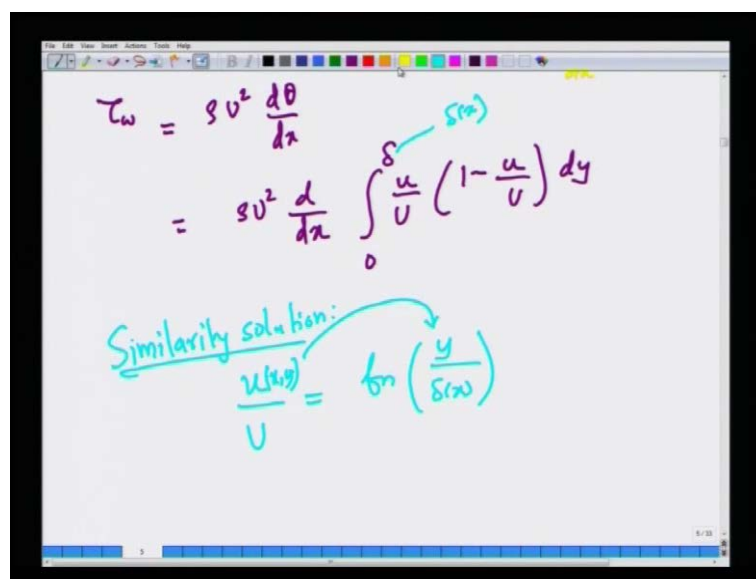 File Edit View Insert Actions Tools Help
B I
τ_w = ρU² dθ/dx
δ(x)
= ρU² d/dx ∫₀^δ u/U (1 - u/U) dy
Similarity solution:
u(x,y)/U = fn (y/δ(x))
5/33
5